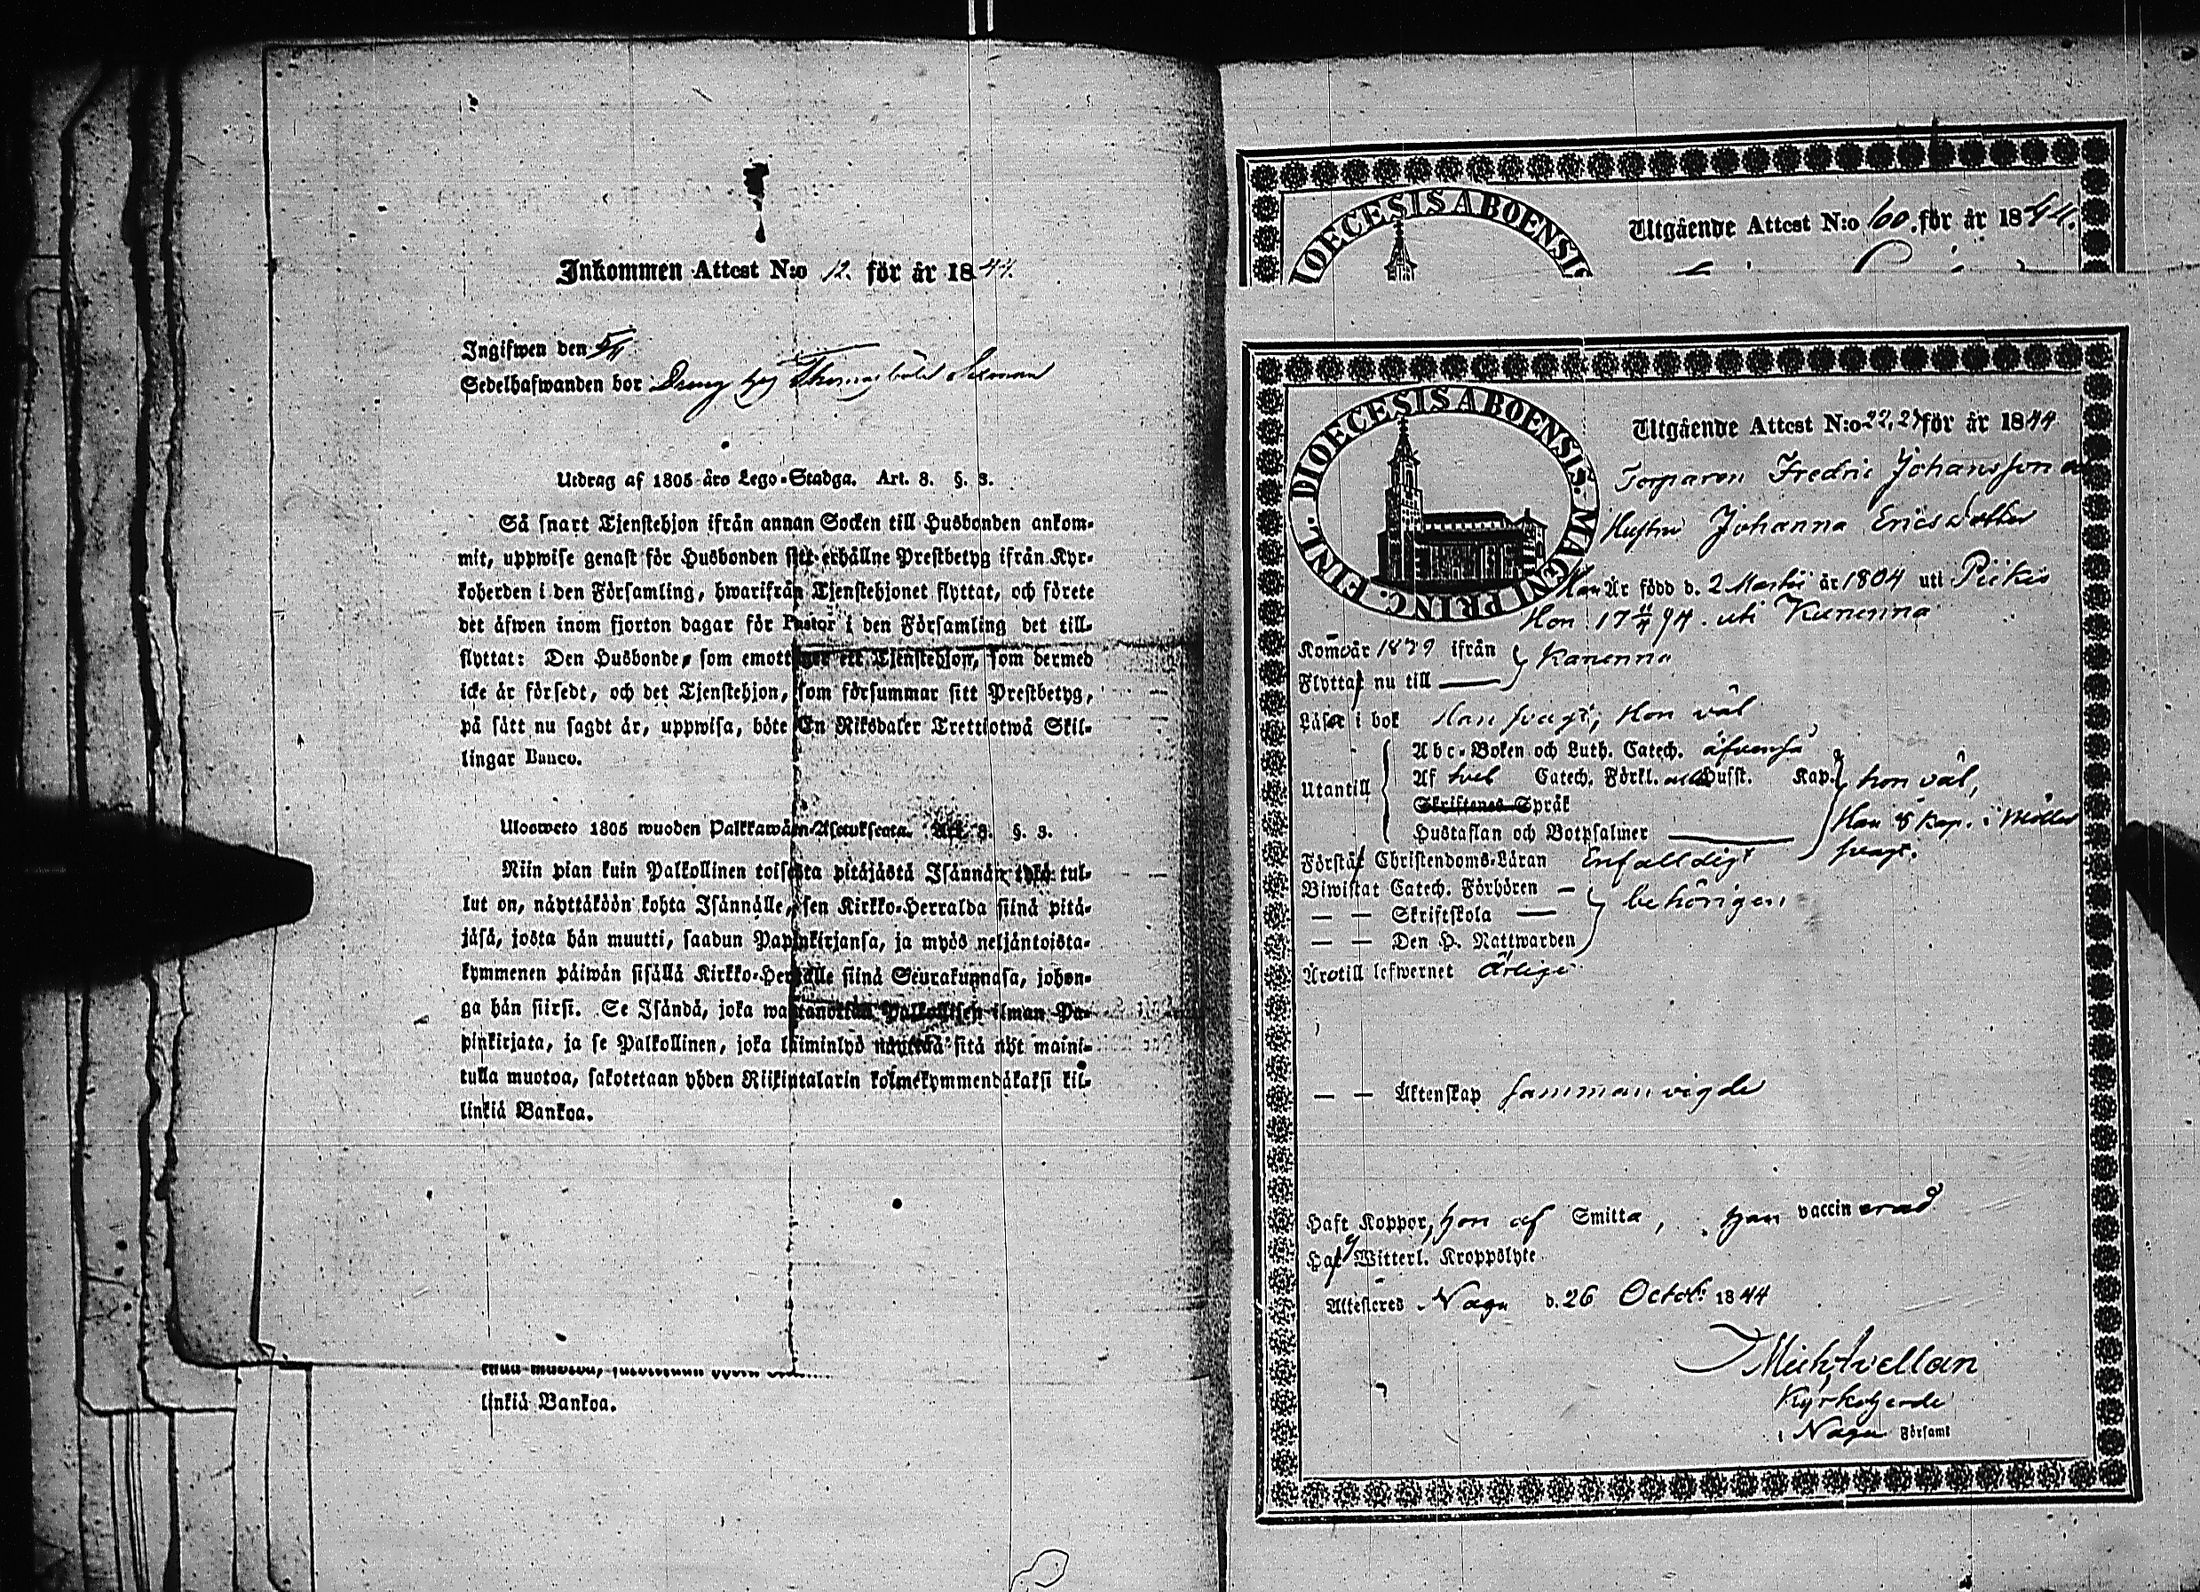 Inkommen Attest N:o 12. för år 1844.
Ingifwen den 5/11
Sedelhafwanden bor Dräng hos Thomas
Utdrag af 1805 års Lego-Stadga. Art. 8. §. 3.
Så snart Tjenstehjon ifrån annan Socken till Husbonden ankom-
mit, uppwise genast för Husbonden sitt erhållne Prestbetyg ifrån Kyr-
koherden i den Församling, hwarifrån Tjenstehjonet flyttat, och förete
det äfwen inom fjorton dagar för Pastor i den Församling det till-
flyttat: Den Husbonde, som emottager ett Tjenstehjon, som dermed
icke är försedt, och det Tjenstehjon, som försummar sitt Prestbetyg,
på sätt nu sagdt är, uppwisa, böte En Riksdaler Trettiotwå Skil-
lingar Banco.
Ulosweto 1805 wuoden Palkkawäen-Asetuksesta. Art. 8. §. 3.
Niin pian kuin Palkollinen toisesta pitäjästä Isännän tykö tul-
lut on, näyttäköön kohta Isännälle, sen Kirkko-Herralda siinä pitä-
jäsä, josta hän muutti, saadun Papinkirjansa, ja myös neljäntoista-
kymmenen päiwän sisällä Kirkko-Herralle siinä Seurakunnasa, johon-
ga hän siirsi. Se Isändä, joka wastanottaa Palkollisen ilman Pa-
pinkirjata, ja se Palkollinen, joka laiminlyö näyttää sitä nyt maini-
tulla muotoa, sakotetaan yhden Riikintalarin kolmekymmendäkaksi kil-
linkiä Bankoa.
linkiä Bankoa.
DIOECESIS ABOENSIS
Utgående Attest N:o 60. för år 1844.
FINL. DIOECESIS ABOENSIS. MAGNI PRINC.
Utgående Attest N:o 22, 23 för år 1844
Torparen Fredric Johansson
Hustru Johanna Ericsdotter
Han Är född d. 2 Martii år 1804 uti Piikis
Hon 17 94. uti Kunenna
Kom år 1839 ifrån } Kanenna
Flyttat nu till
Läser i bok Han svagt, Hon väl
Utantill { Abc-Boken och Luth. Catech. äfvenså
Af Catech. Förkl. Hufst. Kap. } hon väl,
Skriftenes Språk
Hustaflan och Botpsalmer Han kap. i Möller
Förstår Christendoms-Läran Enfalldigt svagt.
Biwistat Catech. Förhören
— — Skriftskola } behörigen
— — Den H. Nattwarden
Ärotill lefwernet Ärlige
— — Äktenskap sammanvigde
Haft Koppor, hon af Smitta, han vaccinerad
Haf Witterl. Kroppslyte
Attesteres Nagu d. 26 Octob: 1844
Kyrkoherde
i Nagu Församl